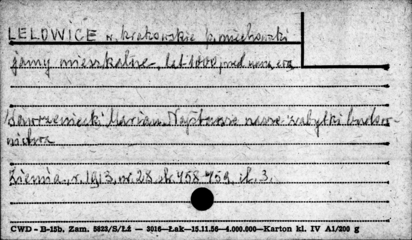 LELOWICE w. krakowskie p. miechowski
jamy mieszkalne, lat 1000 przed naszą erą
Wawrzeniecki Marian. Najstarsze nasze zabytki budow-
nictwa
Ziemia, r. 1913, nr. 28 str. 458-459, il. 3.
CWD - B-15b. Zam. 5823/S/Łź — 3016—Łak—15.11.56—4.000.000—Karton kl. IV A1/200 g